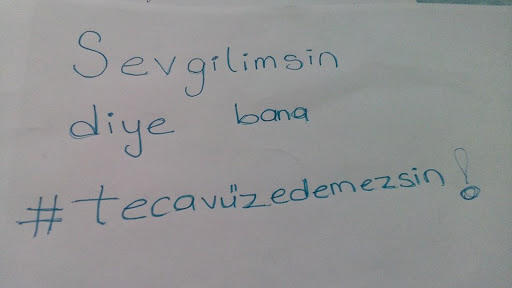 Sevgilimsin
diye bana
#tecavüzedemezsin!